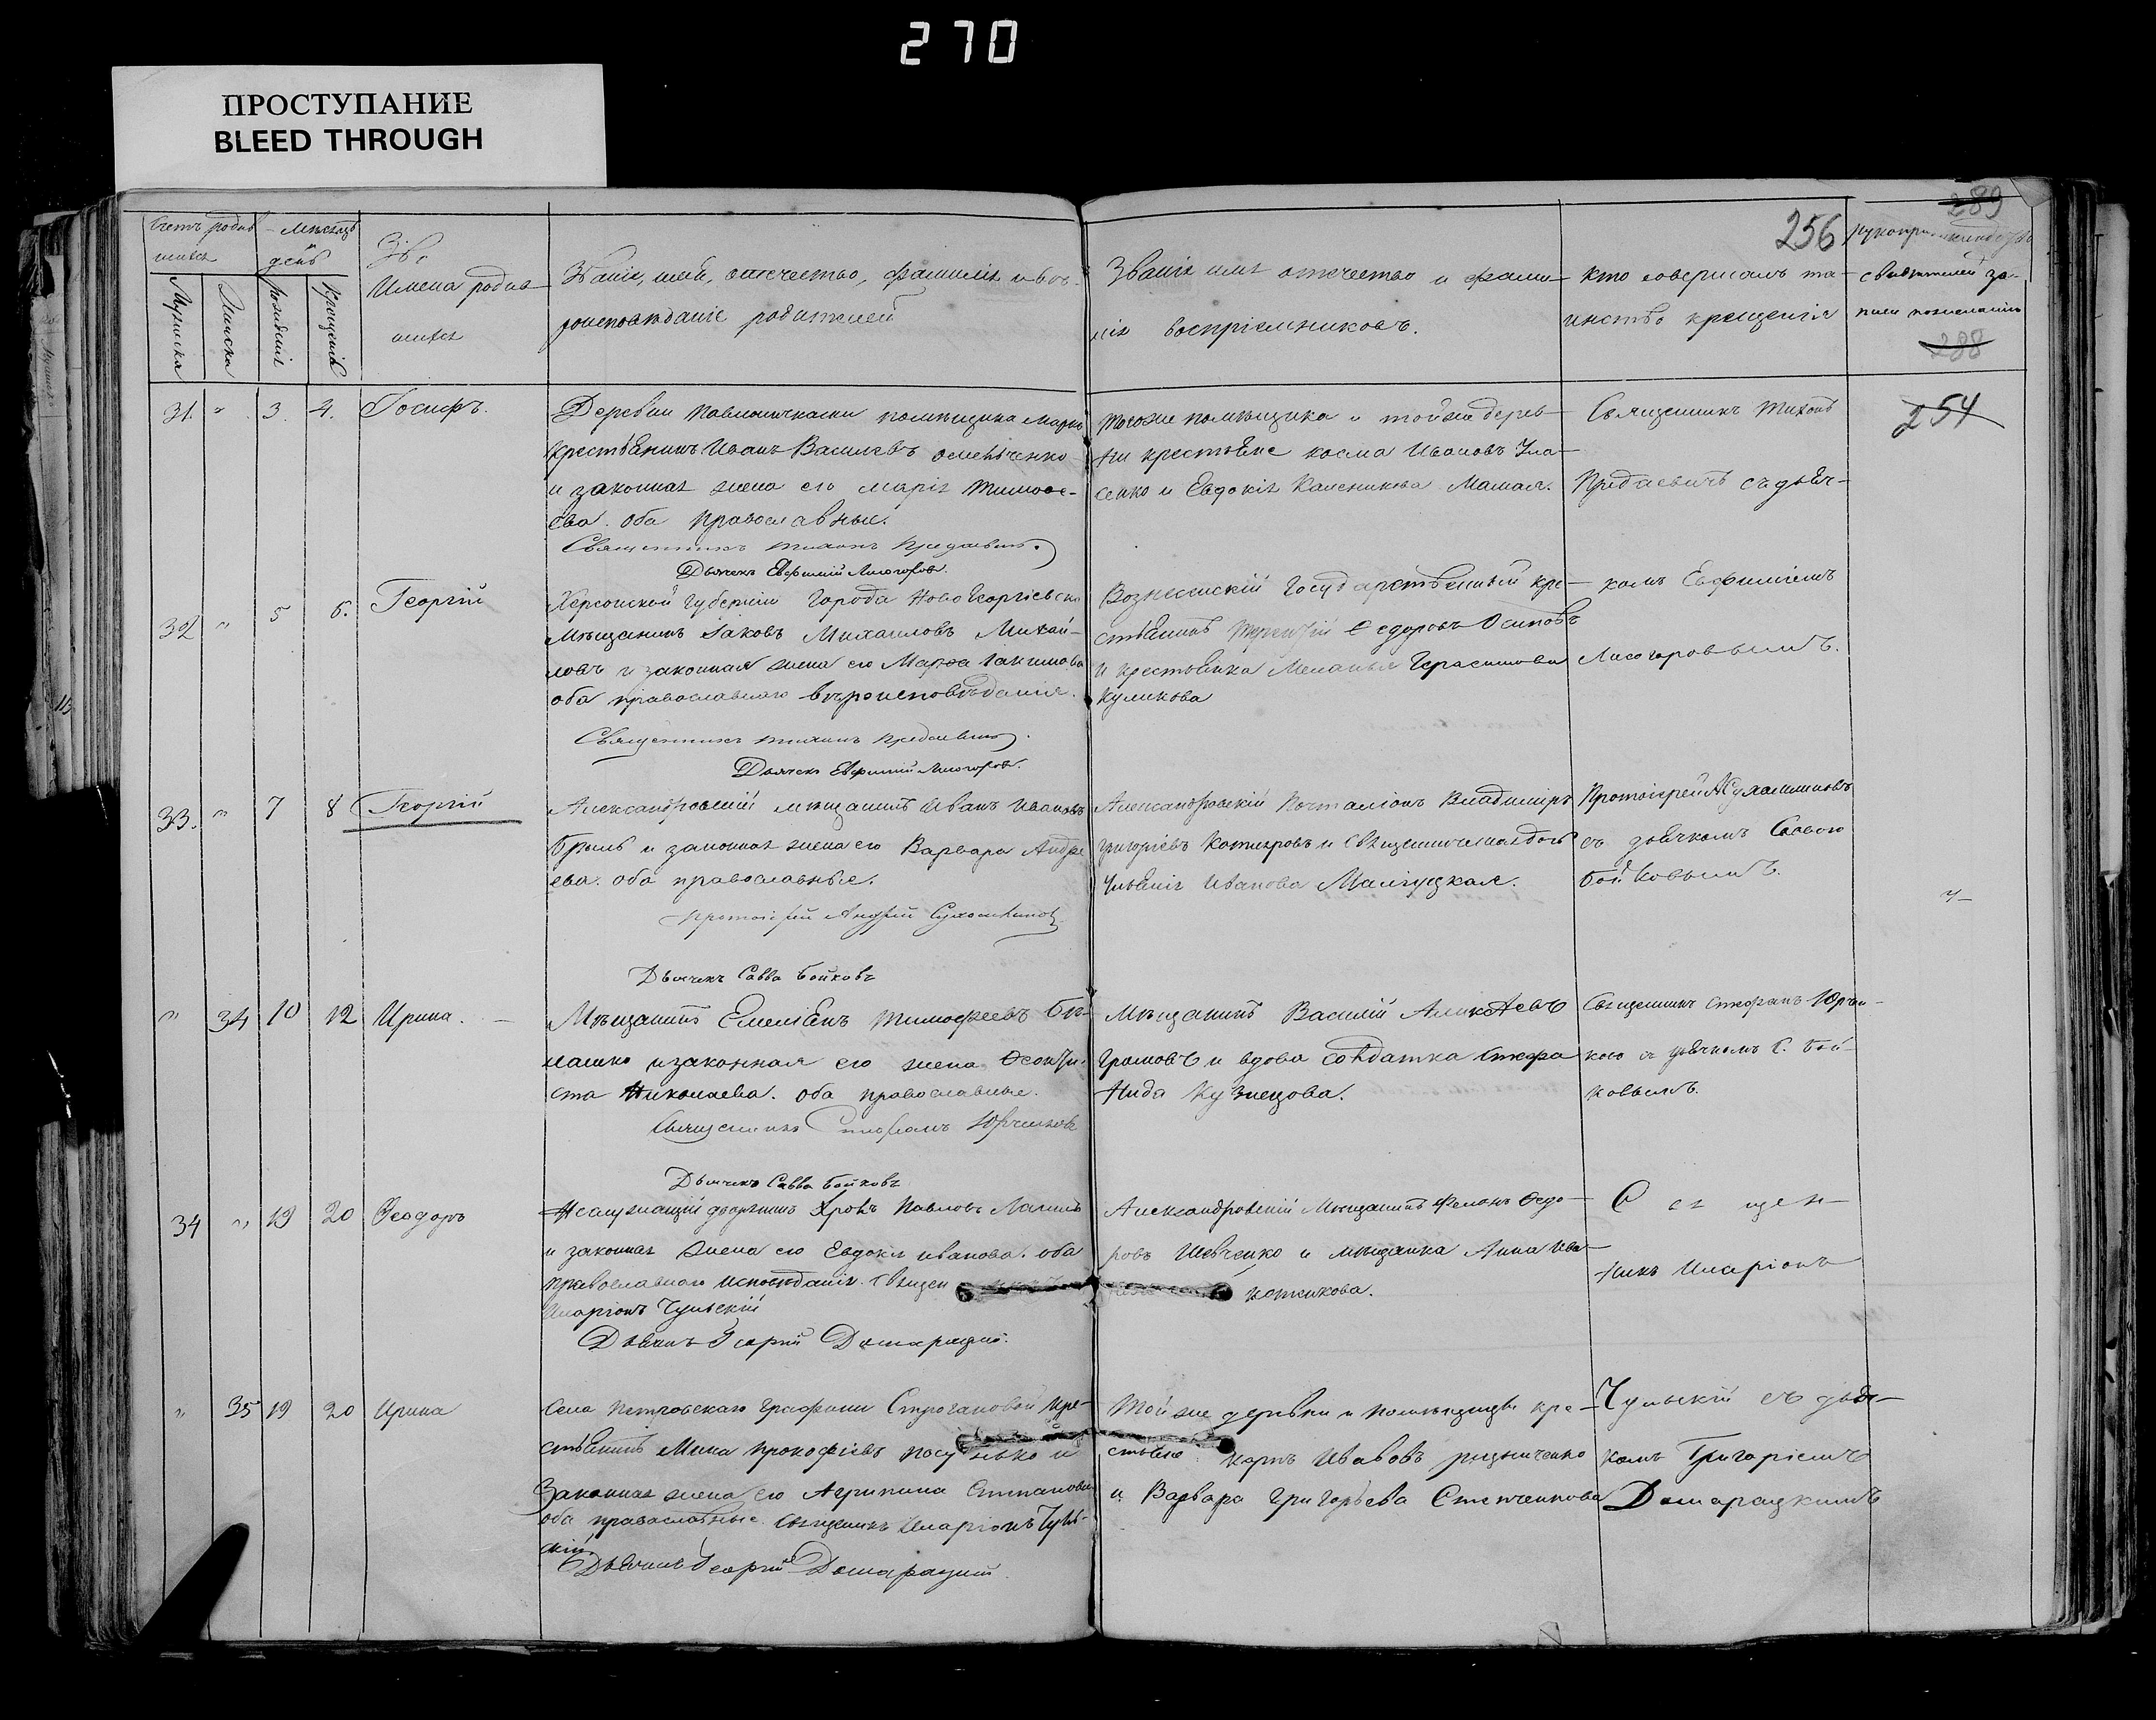 270
ПРОСТУПАНИЕ
BLEED THROUGH
289
256
Счетъ родив
шихся
Мѣсяцъ
и
день
Мужеска
Женска
Рожденія
Крещенія
Имена родив
шихся
Званіе, имя, отчество, фамилія и вѣ-
роисповѣданіе родителей
Званіе имя отчество и фами-
лія воспріемниковъ.
Кто совершалъ та-
инство крещенія
свидѣтелей за-
писи по желанію
288
254
31. " 3. 4. Іосифъ.
Деревни помѣщика
крестьянинъ Иванъ Васильевъ
и законная жена его Марія Тимоѳе-
ева. оба православные.
Священникъ Тихонъ Предаевичъ.
Дьячекъ Евфимій Лисогоровъ.
тогоже помѣщика и тойже дерев-
ни крестьяне Косма Ивановъ Ула-
сенко и Евдокія Калесникова Мамая.
Священникъ Тихонъ
Предаевичъ съ дьяч-
32 " 5 6. Георгій
Херсонской Губерніи Города НовоГеоргіевска
Мѣщанинъ Іаковъ Михаиловъ Михай-
ловъ и законная жена его Марѳа Іакимова
оба православнаго вѣроисповѣданія.
Священникъ Тихонъ Предаевичъ.
Дьячекъ Евфимій Лисогоровъ.
Вознесенскій Государственный кре-
стьянинъ Терентій Ѳедоровъ Осиповъ
и крестьянка Меланья Герасимова
Куликова
комъ Евфиміемъ
Лисогоровымъ.
33. " 7 8 Георгій
Александровскій мѣщанинъ Иванъ Ивановъ
Брыль и законная жена его Варвара Андре
ева. оба православные.
Протоіерей Андрей Сухомлиновъ
Дьячекъ Савва Бойковъ
Александровскій Почталіонъ Владиміръ
Григоріевъ и Священническая дочь
Ульянія Иванова
Протоіерей А Сухомлиновъ
съ дьячкомъ Саввою
Бойковымъ.
" 34 10 12 Ирина.
Мѣщанинъ Емеліянъ Тимофеевъ
и законная его жена Ѳеокти-
ста Николаева. оба православные.
Священникъ Стефанъ Юрченковъ
Дьячекъ Савва Бойковъ
Мѣщанинъ Василій Алексѣевъ
Громовъ и вдова солдатка Стефа
нида Кузнецова.
Священникъ Стефанъ Юрчен-
ковъ съ дьячкомъ С. Бой-
ковымъ.
34 " 19 20 Ѳеодоръ
Несаужащій дворянинъ Павловъ
и законная жена его Евдокія Иванова. оба
православнаго исповѣданія. Священ
Иларіонъ Чульскій
Дьячекъ Георгій Домарацкій.
Александровскій Мѣщанинъ Филонъ Ѳедо-
ровъ Шевченко и мѣщанка Анна Ива-
Котикова.
Священ-
никъ Иларіонъ
" 35 19 20 Ирина
Села Петровскаго Графини Строгановой кре-
стьянинъ Мина Прокофіевъ и
Законная жена его Агрипина Степанова
оба православные. Священникъ Иларіонъ Чуль-
скій
Дьячекъ Георгій Домарацкій.
Той же деревни и помѣщицы кре-
стьяне Карпъ Ивановъ
и Варвара Григорьева Степченкова
Чульскій съ дьяч-
комъ Григоріемъ
Домарацкимъ